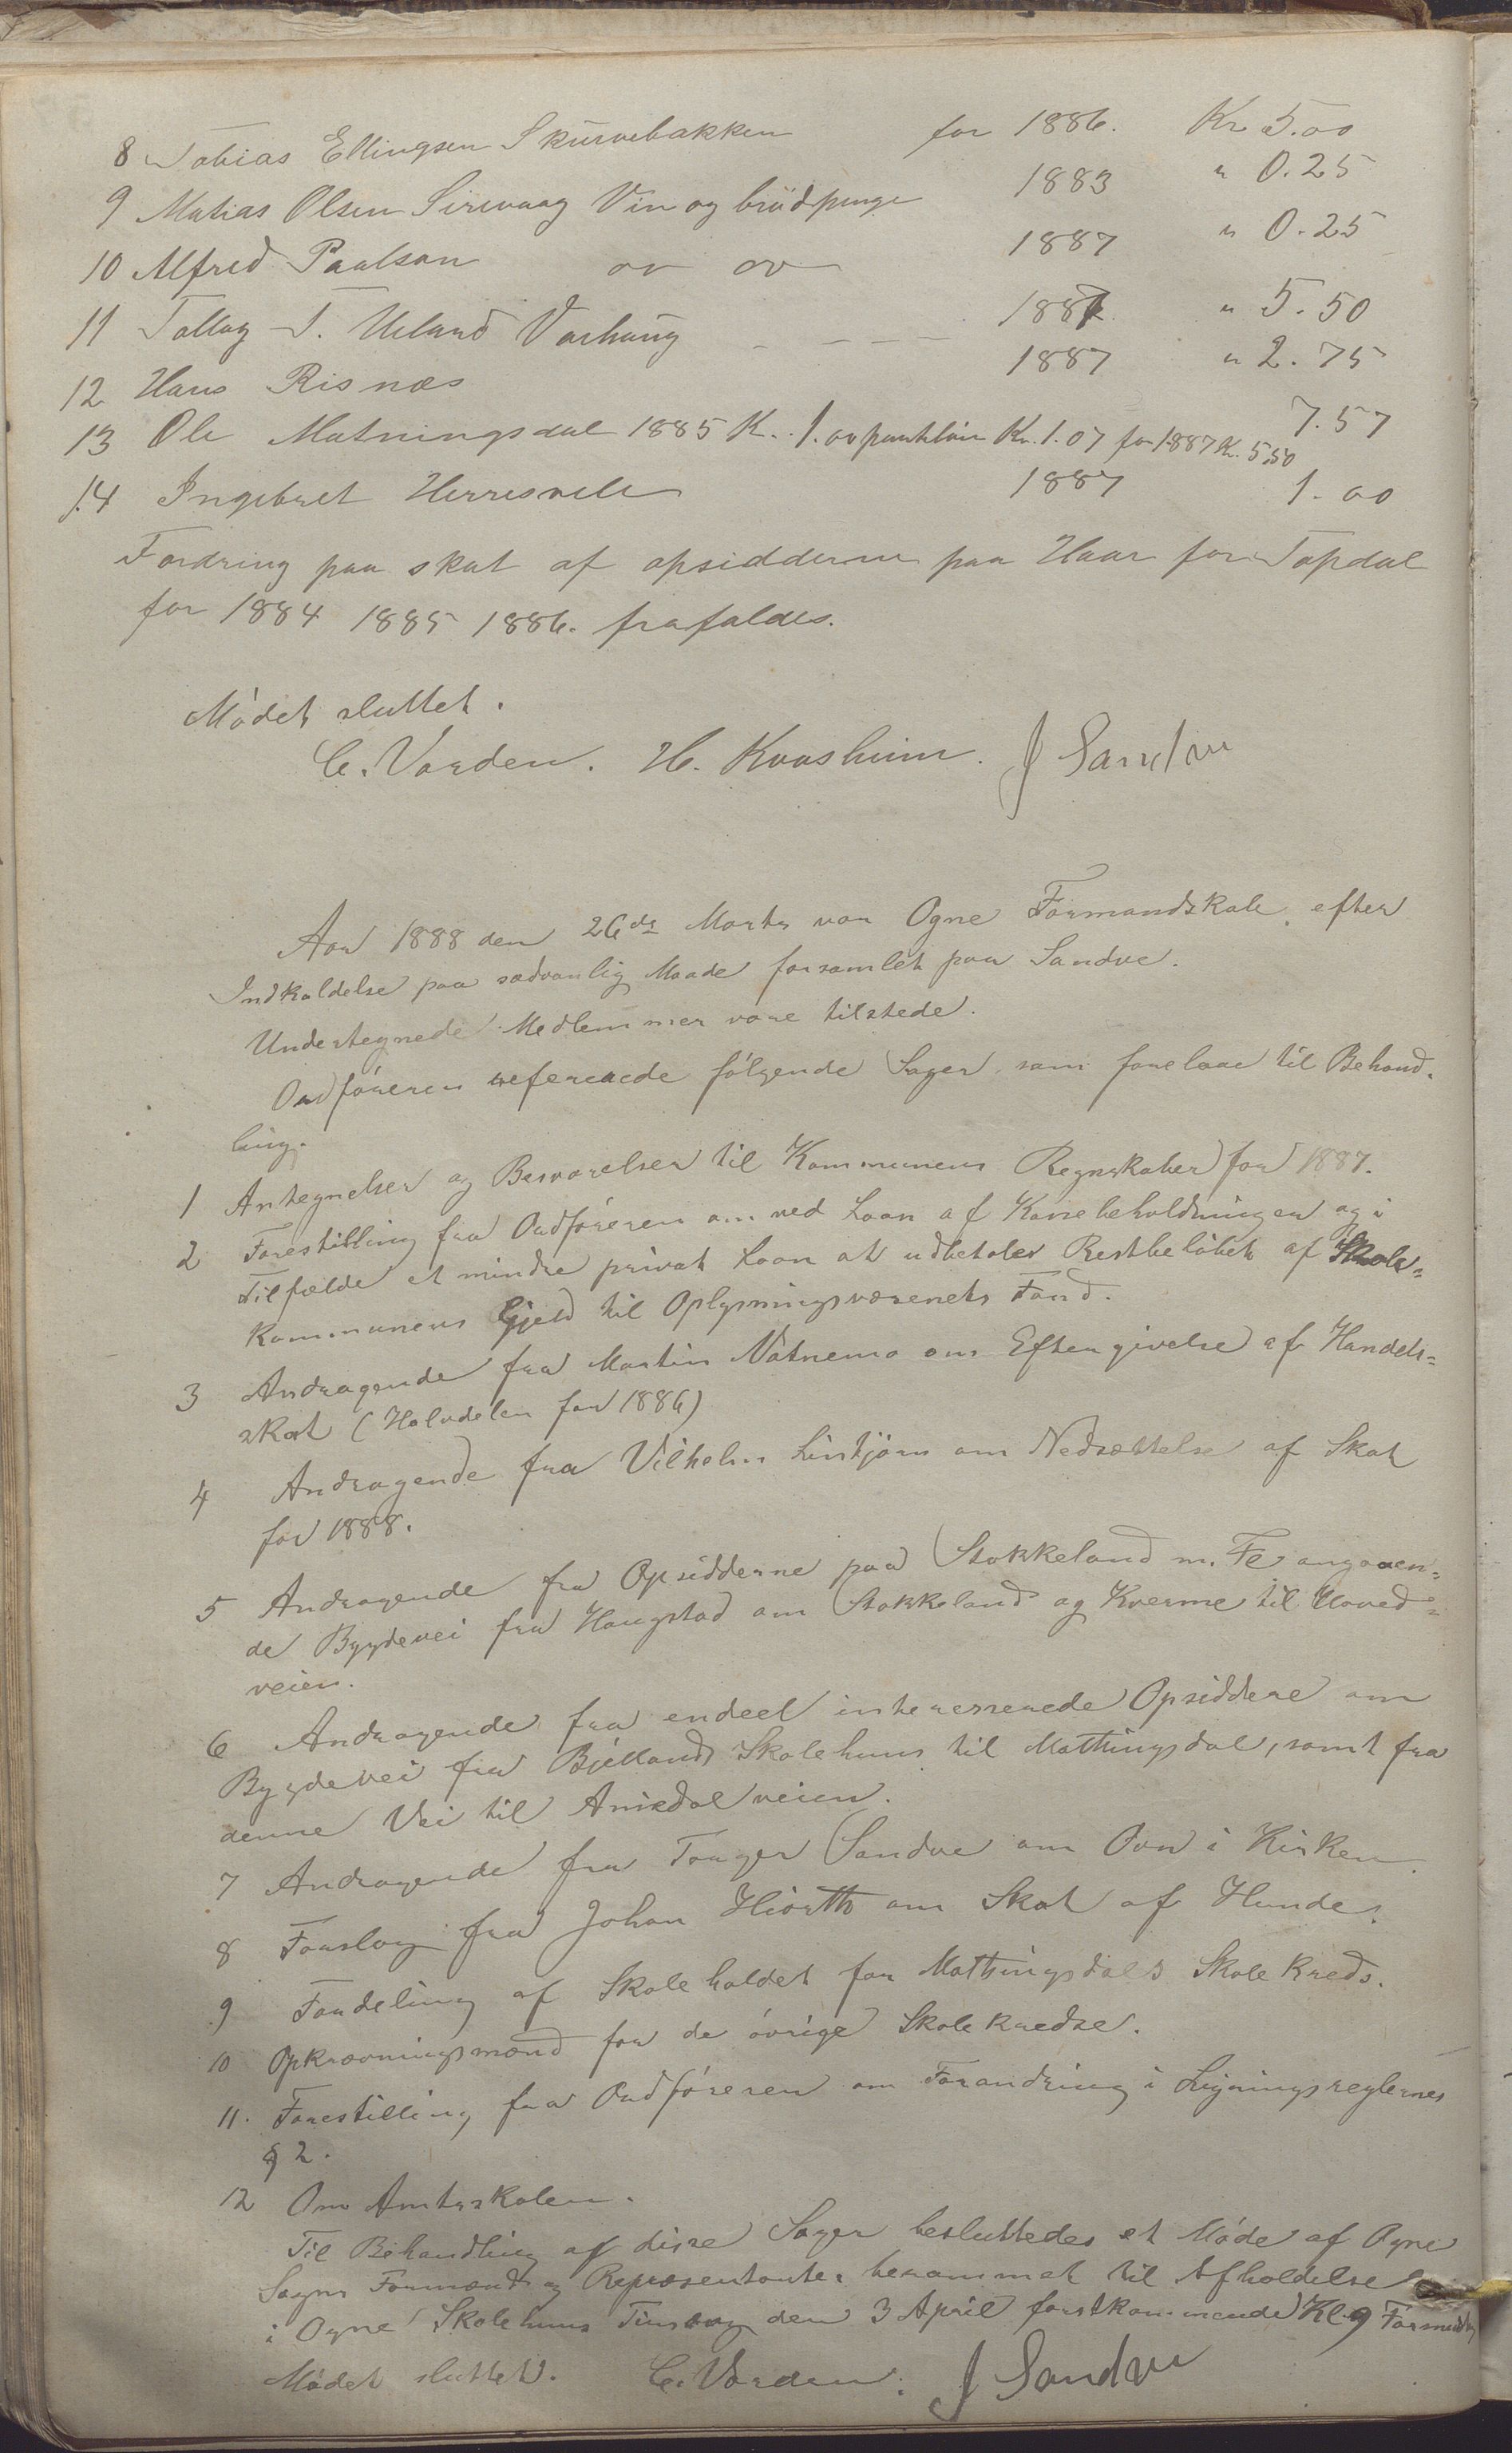 8 Tobias Ellingsen Skurvebakken for 1886. Kr 5.00
9 Matias Olsen Sirevaag Vin og brødpenge 1883 " 0.25
10 Alfred Paulson " " 1887 " 0.25
11 Tollag T. Ueland Varhaug - - - - 1887 " 5.50
12 Hans Risnæs 1887 " 2.75
13 Ole Matningsdal 1885 K. 1.00 panteløn Kr. 1.07 for 1887 Kr. 5.50 7.57
14 Ingebret Herresvele 1887 1.00
Fordring paa skat af opsidderne paa Haar for Tapdal
for 1884 1885 1886. frafaldes.
Mødet sluttet.
C. Varden. H. Kvasheim. J Sandve
Aar 1888 den 26de Marts var Ogne Formandskab, efter
Indkaldelse paa sædvanlig Maade forsamlet paa Sandve.
Undertegnede Medlemmer vare tilstede.
Ordføreren refererede følgende Sager, som forelaae til Behand-
ling.
1 Antegnelser og Besvarelser til Kommunens Regnskaber for 1887.
2 Forestilling fra Ordføreren om ved Laan af Kassebeholdningen og i
Tilfælde et mindre privat Laan at udbetales Restbeløbet af Skole-
kommunens Gjeld til Oplysningsvæsenets Fond.
3 Andragende fra Martin Nätnemo om Eftergivelse af Handels-
skat (Halvdelen for 1886)
4 Andragende fra Vilhelm Lintjørn om Nedsættelse af Skat
for 1888.
5 Andragende fra Opsidderne paa Stokkeland m. Fl angaaen-
de Bygdevei fra Haugstad om Stokkeland og Kverme til Hoved-
veien.
6 Andragende fra endeel interesserede Opsiddere om
Bygdevei fra Bjellands Skolehuus til Mattingsdal, samt fra
denne Vei til Anisdalveien.
7 Andragende fra Torger Sandve om Ovn i Kirken.
8 Forslag fra Johan Hiorth om Skat af Hunde.
9 Fordeling af Skoleholdet for Mattingsdals Skolekreds.
10 Opkrævningsmænd for de øvrige Skolekredse.
11. Forestilling fra Ordføreren om Forandring i Ligningsreglernes
§ 2.
12 Om Amtsskolen.
Til Behandling af disse Sager besluttedes et Møde af Ogne
Sogns Formænd og Repræsentanter berammet til Afholdelse
i Ogne Skolehuus Tirsdag den 3 April førstkommende Kl 9 Formiddag
Mødet sluttet. C. Varden. J Sandve